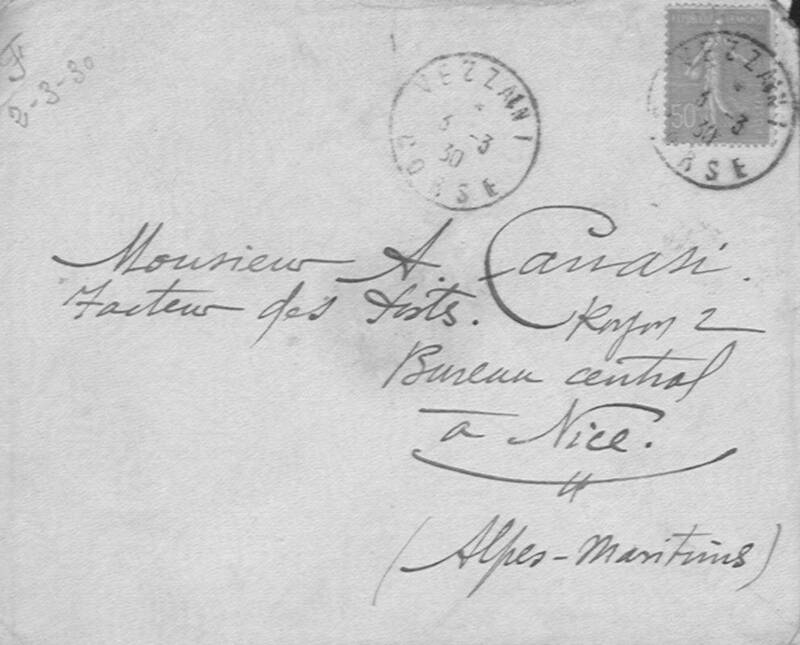 F
2-3-30
VEZZANI
3 -3
30
CORSE
REPUBLIQUE FRANÇAISE
50
VEZZANI
3 -3
30
RSE
Monsieur A.
Facteur des Postes. Rayon 2
Bureau central
a Nice.
(Alpes-Maritimes)